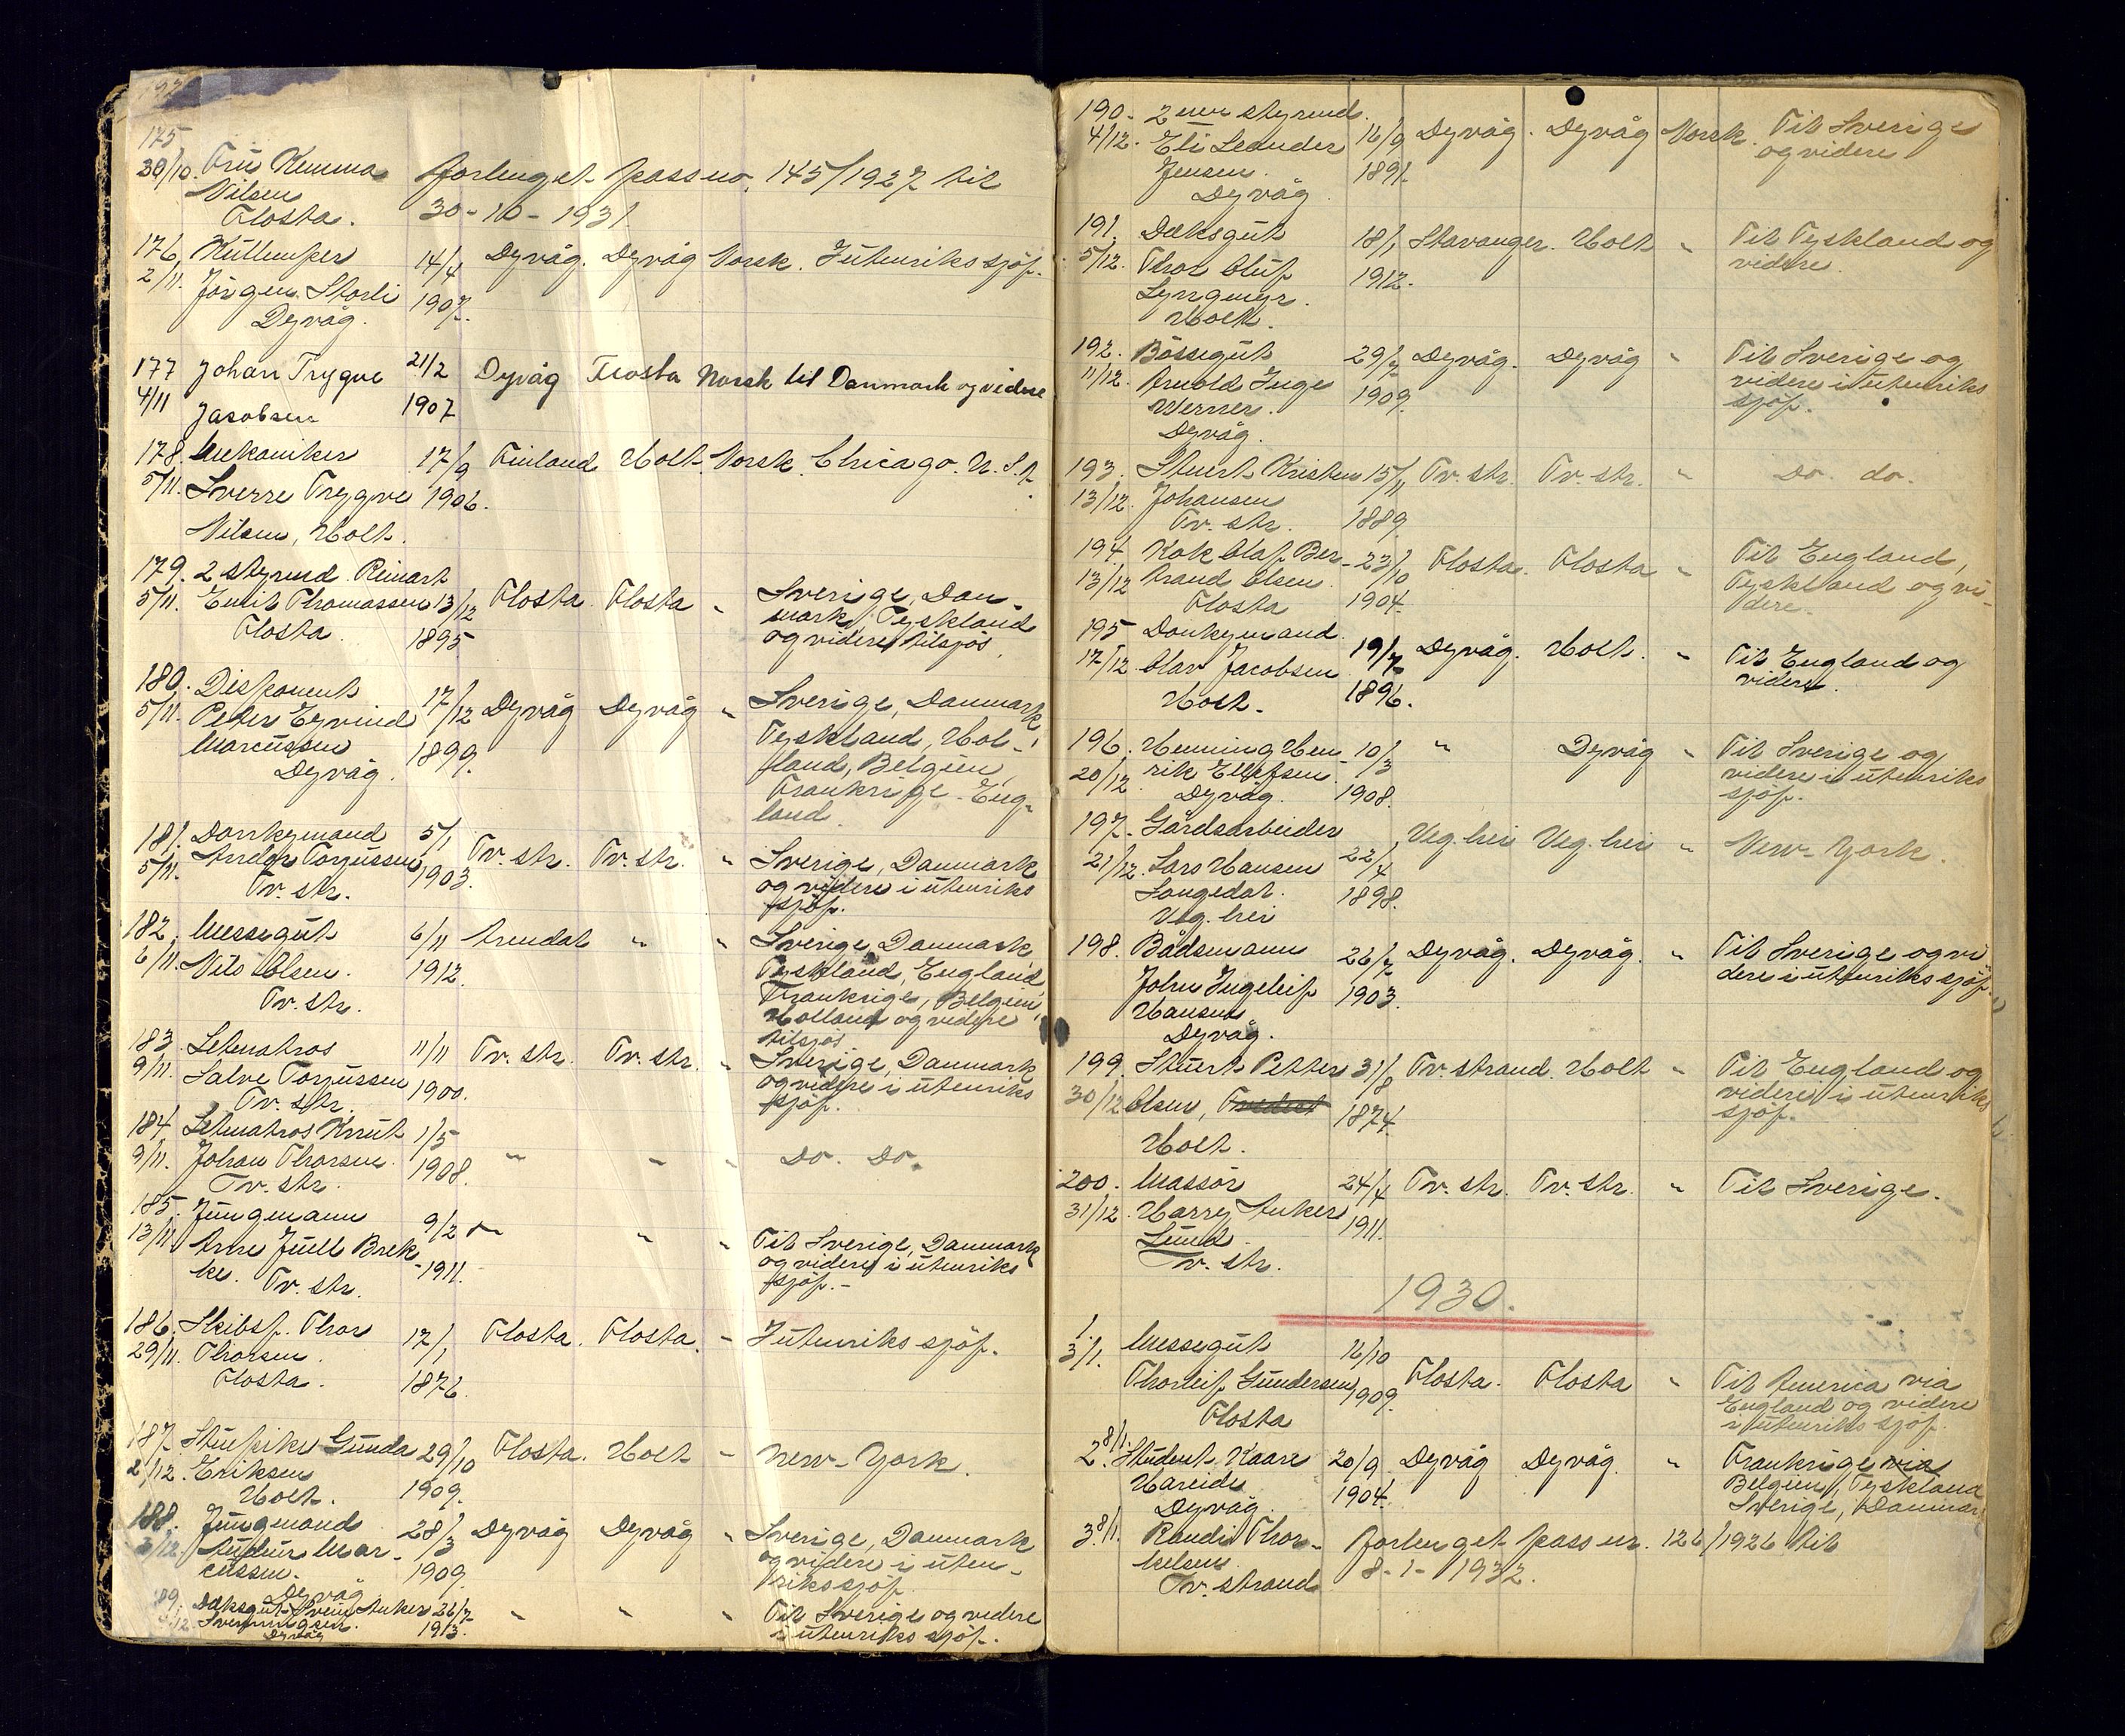 192
175
30/10. Fru Kemma
Nilsen
Flosta.
forlenget pass no. 145/1927 til
30-10-1931
176. Kullemper 14/4 Dyvåg. Dyvåg Norsk. I utenriks sjøf.
2/11. Jørgen Storli 1907.
Dyvåg.
177 Johan Trygve 21/2 Dyvåg Flosta Norsk til Danmark og videre
4/11 Jacobsen 1907
178. Mekaniker 17/9 Finland Holt Norsk. Chicago. U.S.A.
5/11. Sverre Trygve 1906.
Nilsen, Holt.
179. 2 styrmd. Reinart
5/11. Emil Thomassen 13/12 Flosta. Flosta „ Sverige, Dan-
Flosta. 1895 mark, Tyskland
og videre tilsjøs.
180. Disponent 17/12 Dyvåg Dyvåg „ Sverige, Danmark,
5/11. Peter Eyvind 1899. Tyskland, Hol-
Marcussen land, Belgien,
Dyvåg. Frankrige Eng-
land
181. Donkymand 5/1 Tv. str. Tv. str. „ Sverige, Danmark
5/11. Anders Torjussen 1903. og videre i utenriks
Tv. str. sjøf.
182. Messegut 6/11 Arendal „ „ Sverige, Danmark,
6/11. Nils Olsen. 1912. Tyskland, England
Tv. str. Frankrige, Belgien,
Holland og videre
tilsjøs
183. Letmatros 11/11 Tv. str. Tv. str. „ Sverige, Danmark
9/11. Salve Torjussen 1900. og videre i utenriks
Tv. str. sjøf.
184. Letmatros Knut 1/5 „ „ „ Do. Do.
9/11. Johan Thorsen. 1908.
Tv. str.
185. Jungmann 9/2 „ „ „ Til Sverige, Danmark
13/11 Arne Juell Brek- 1911. og videre i utenriks
ke. Tv. str. sjøf.-
186. Skibsf. Thor 17/1 Flosta. Flosta. „ I utenriks sjøf.
29/11. Thorsen. 1876.
Flosta.
187. Stuepike Gunda 29/10 Flosta. Holt „ New-York.
2/12. Eriksen 1909.
Holt.
188. Jungmand 28/3 Dyvåg Dyvåg „ Sverige, Danmark
3/12. Mar- 1909. og videre i uten-
cussen. riks sjøf.
Dyvåg
189. Dæksgut Svein Anker 26/7 „ „ „ Til Sverige og videre
4/12. Svenningsen. 1913. i utenriks sjøf.
Dyvåg
190. 2nen styrmd.
4/12. Eli Leander 16/9 Dyvåg. Dyvåg Norsk. Til Sverige
Jensen. 1891. og videre
Dyvåg
191. Dæksgut 18/1 Stavanger. Holt „ Til Tyskland og
5/12. Thor Oluf 1912. videre.
Lyngmyr.
Holt.
192. Bøssegut 29/7 Dyvåg. Dyvåg „ Til Sverige og
11/12. Arnold Inge 1909. videre i utenriks
Werner. sjøf.
Dyvåg.
193. Stuert Kristen 15/11 Tv. str. Tv. str. „ Do. do.
13/12. Johansen 1889.
Tv. str.
194. Kok Olaf Ber- 23/10 Flosta. Flosta „ Til England,
13/12 trand Olsen. 1904. Tyskland og vi-
Flosta dere.
195 Donkymand. 19/7 Dyvåg. Holt. „ Til England og
17/12 Olav Jacobsen 1896. videre.
Holt.
196. Henning Hen- 10/3 „ Dyvåg „ Til Sverige og
20/12 rik Ellefsen. 1908. videre i utenriks
Dyvåg. sjøf.
197. Gårdsarbeider 22/4 Veg.hei Veg.hei „ New-York.
21/12. Lars Hansen 1898.
Langedal.
Veg. hei
198. Bådsmann 26/7 Dyvåg. Dyvåg. „ Til Sverige og vi-
John Ingeleif 1903. dere i utenriks sjøf.
Hansen
Dyvåg.
199. Stuert Petter 31/8 Tv. strand. Holt „ Til England og
30/12 Olsen, 1874. videre i utenriks
Holt. sjøf.
200. Massør 24/4 Tv. str. Tv. str. „ Til Sverige.
31/12. Harry Anker 1911.
Lund.
Tv. str.
1930.
1. Messegut 16/10
3/1. Thorleif Gundersen 1909. Flosta. Flosta „ Til America via
Flosta England og videre
i utenriks sjøf.
2. 8/1. Student Kaare 20/9 Dyvåg Dyvåg. „ Frankrige via
Hareide 1904. Belgien, Tyskland
Dyvåg. Sverige, Danmark
3. 8/1. Randi Thor- forlenget pass nr. 126/1926 til
kelsen. 8-1-1932.
Tv. strand